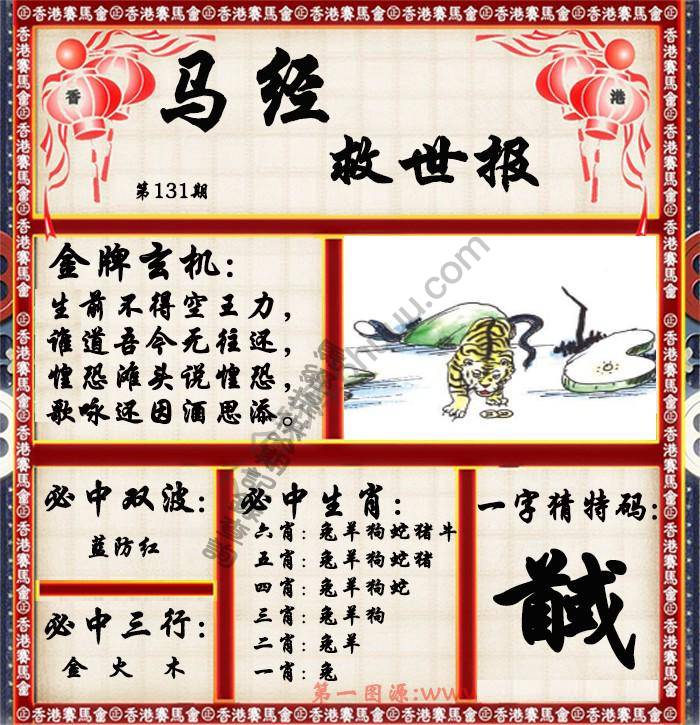 香港賽馬會
香 港
马经
救世报
第131期
金牌玄机：
生前不得空王力，
谁道吾今无往还，
惶恐滩头说惶恐，
歌咏还因酒思添。
必中双波：
蓝防红
必中三行：
金 火 木
必中生肖：
六肖：兔羊狗蛇猪牛
五肖：兔羊狗蛇猪
四肖：兔羊狗蛇
三肖：兔羊狗
二肖：兔羊
一肖：兔
一字猜特码：
馘
第一图源:www